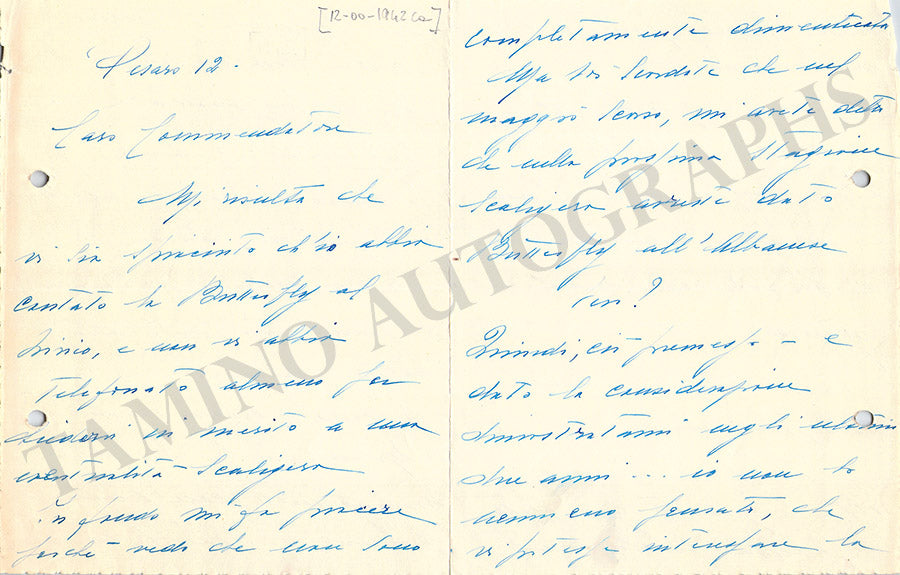 [12-00-1942 ca]
Pesaro 12.
Caro Commendatore
Mi risulta che
vi sia spiaciuto ch'io abbia
cantato la Butterfly al
Lirico, e non vi abbia
telefonato almeno per
chiedervi in merito a una
eventualità Scaligera
In fondo mi fa piacere
perchè vedo che non sono
completamente dimenticata
Ma vi scordate che nel
maggio scorso, mi avete detto
che nella prossima Stagione
Scaligera avreste dato
Butterfly all'Albanese
ver?
Quindi, ciò premesso - e
data la considerazione
dimostratami negli ultimi
due anni ... io non ho
nemmeno pensato, che
vi potesse interessare la
TAMINO AUTOGRAPHS